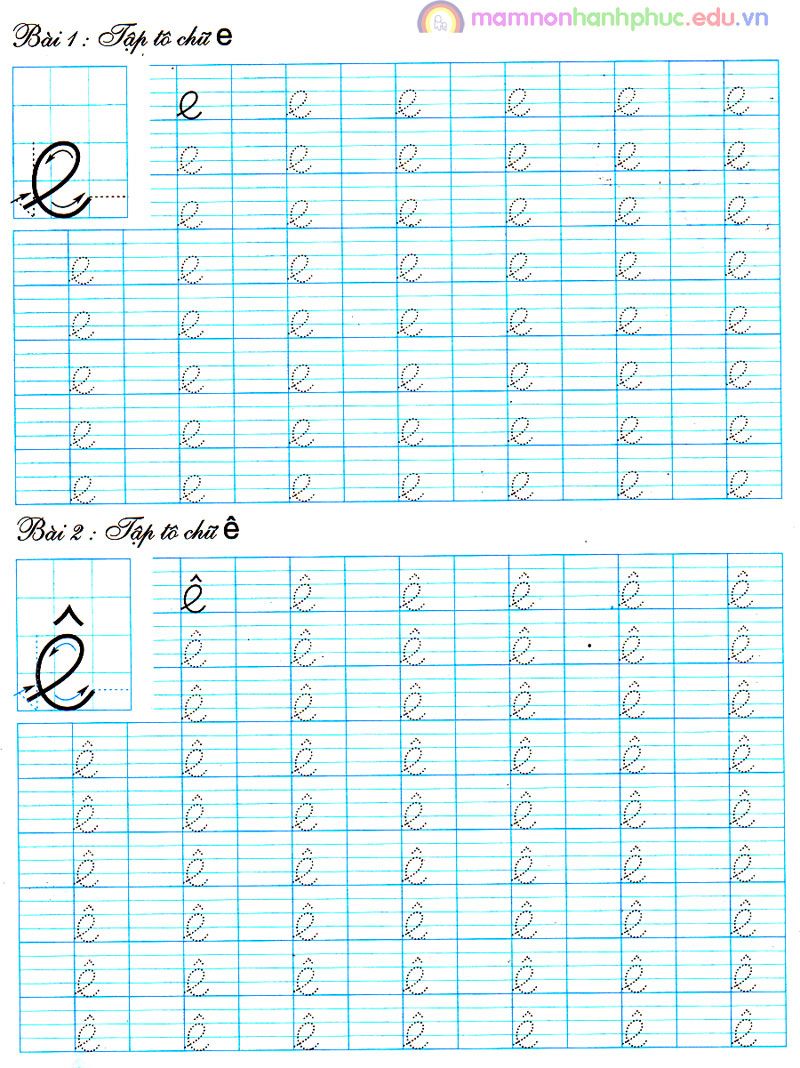 mamnonhanhphuc.edu.vn
Bài 1 : Tập tô chữ e
e
e e e e e e
e e e e e e
e e e e e e
e e e e e e e
e e e e e e e
e e e e e e e
e e e e e e e
e e e e e e e
Bài 2 : Tập tô chữ ê
ê
ê ê ê ê ê ê
ê ê ê ê ê ê
ê ê ê ê ê ê
ê ê ê ê ê ê ê
ê ê ê ê ê ê ê
ê ê ê ê ê ê ê
ê ê ê ê ê ê ê
ê ê ê ê ê ê ê
ê ê ê ê ê ê ê